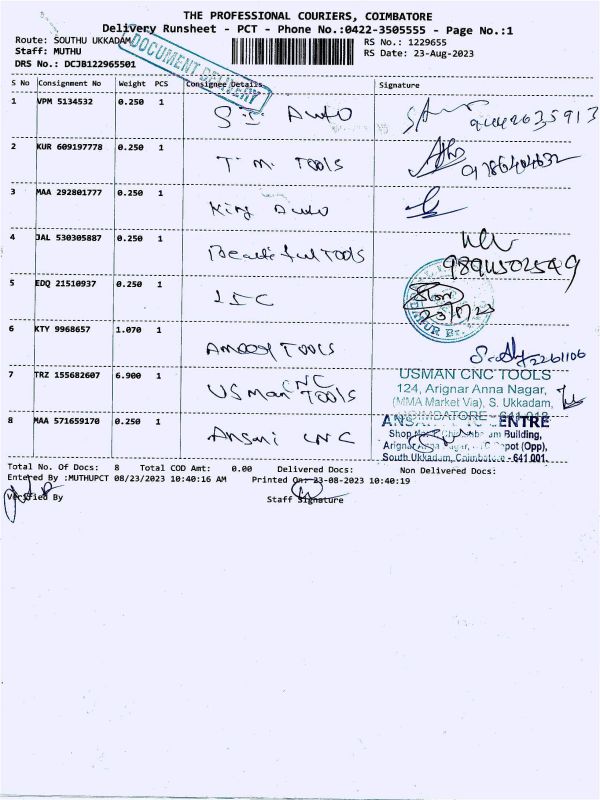 THE PROFESSIONAL COURIERS, COIMBATORE
Delivery Runsheet - PCT - Phone No.:0422-3505555 - Page No.:1
Route: SOUTHU UKKADAM
RS No.: 1229655
Staff: MUTHU
RS Date: 23-Aug-2023
DRS No.: DCJB122965501
DOCUMENT DELIVERY
S No Consignment No Weight PCS Consignee Details Signature
1 VPM 5134532 0.250 1 Auto
2 KUR 609197778 0.250 1 T.M. TOOLS
3 MAA 292801777 0.250 1 King Auto
4 JAL 530305887 0.250 1 Beautiful TOOLS 9894502549
5 EDQ 21510937 0.250 1 LIC
6 KTY 9968657 1.070 1 TOOLS
7 TRZ 155682607 6.900 1 USman CNC TOOLS
USMAN CNC TOOLS
124, Arignar Anna Nagar,
(MMA Market Via), S. Ukkadam,
COIMBATORE - 641 001
8 MAA 571659170 0.250 1 Ansari CNC
CENTRE
Building,
(Opp),
South Ukkadam, Coimbatore - 641 001.
Total No. Of Docs: 8 Total COD Amt: 0.00 Delivered Docs: Non Delivered Docs:
Entered By :MUTHUPCT 08/23/2023 10:40:16 AM Printed On: 23-08-2023 10:40:19
Verified By Staff Signature